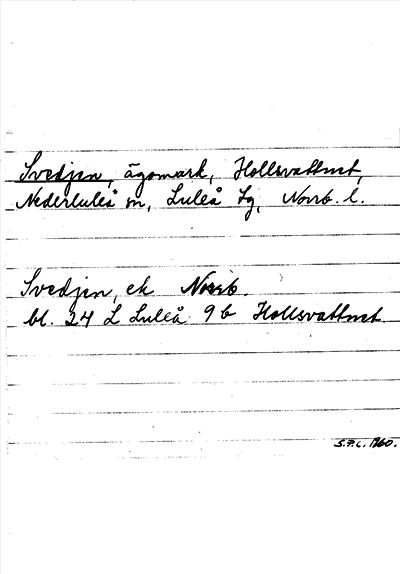 Svedjen, ägomark, Hollsvattnet,
Nederluleå sn, Luleå tg, Norrb. l.
Svedjen, ek Norrb.
bl. 24 L Luleå 9 b Hollsvattnet
1960.